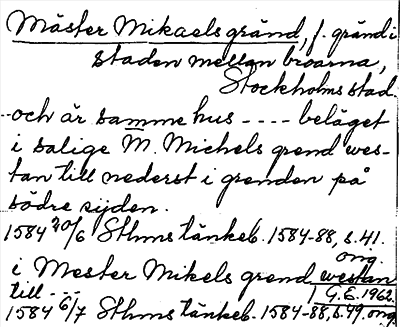 Mäster Mikaels gränd, f. gränd i
staden mellan broarna,
Stockholms stad.
--och är samme hus ---- beläget
i salige M. Michels grend wes-
tan till nederst i grenden på
södre sijden.
1584 20/6 Sthms tänkeb. 1584-88, s. 41.
orig.
i Mester Mikels grend westan
till ---
G.E. 1962.
1584 6/7 Sthms tänkeb. 1584-88, s. 49, orig.